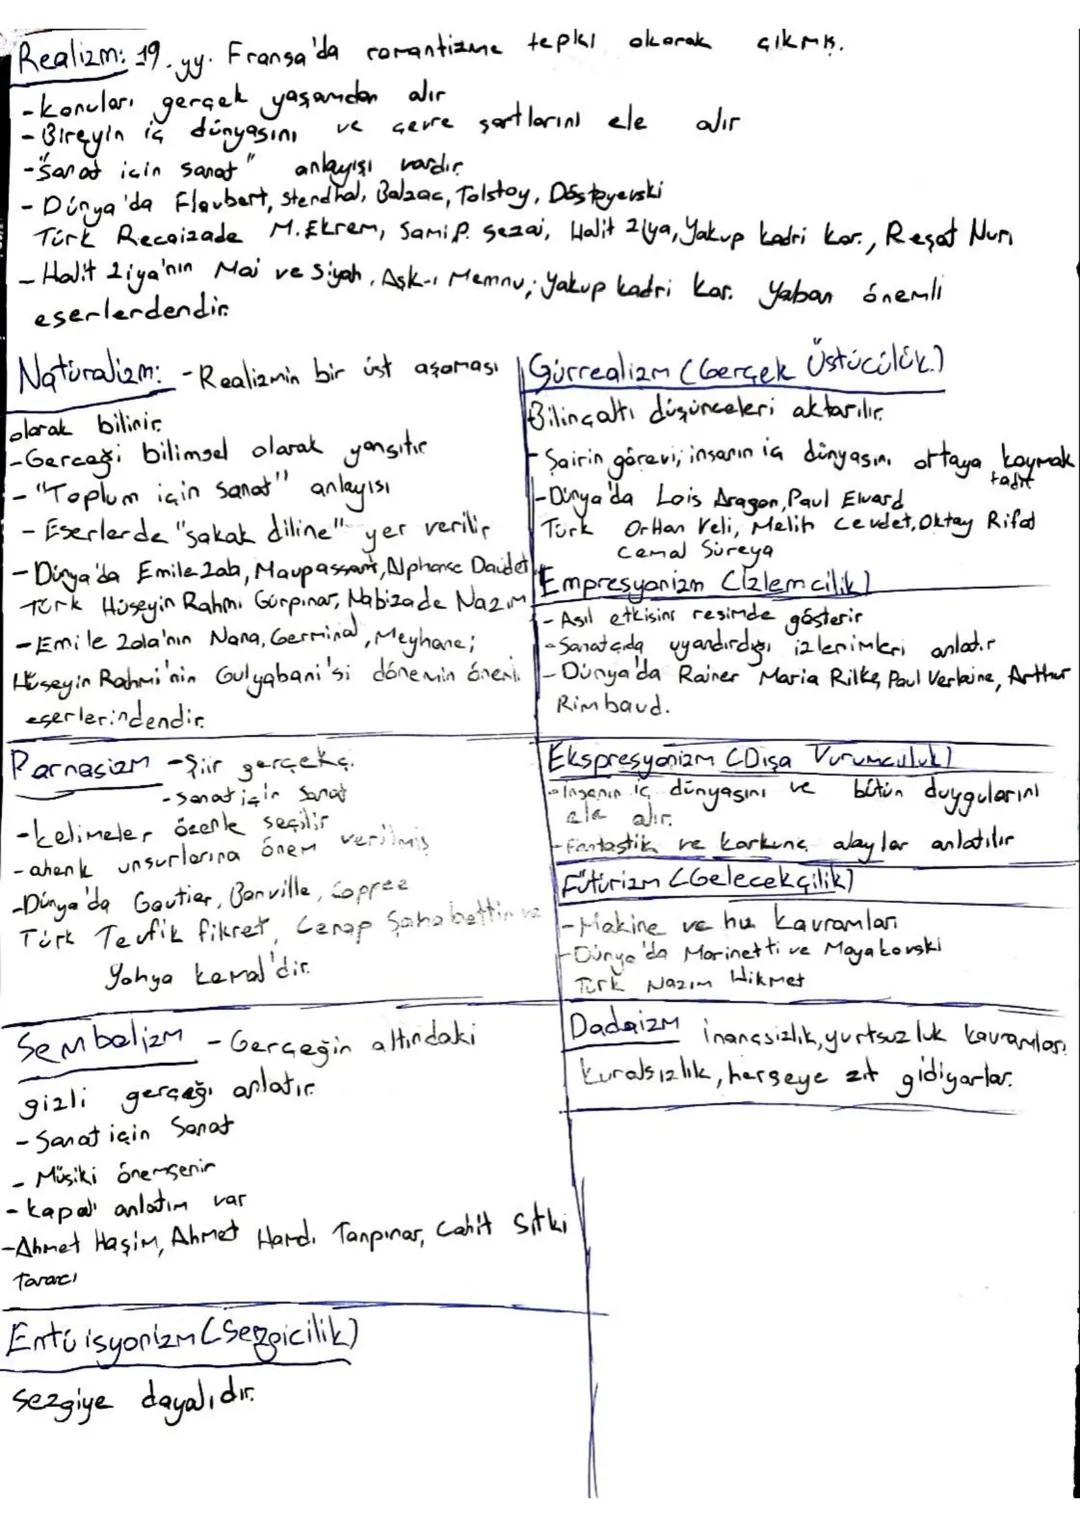 Realizm: 19. yy. Fransa'da romantizme tepki olarak çıkmış.
- Konuları gerçek yaşamdan alır
- Bireyin iç dünyasını ve çevre şartlarını ele alır
- "Sanat için sanat" anlayışı vardır.
- Dünya'da Flaubert, Stendhal, Balzac, Tolstoy, Dostoyevski
Türk Recaizade M. Ekrem, Sami P. Sezai, Halit Ziya, Yakup Kadri Kar., Reşat Nuri
- Halit Ziya'nın Mai ve Siyah, Aşk-ı Memnu; Yakup Kadri Kar. Yaban önemli
eserlerdendir.
Natüralizm: - Realizmin bir üst aşaması
olarak bilinir.
- Gerçeği bilimsel olarak yansıtır
- "Toplum için sanat" anlayışı
- Eserlerde "sokak diline" yer verilir
- Dünya'da Emile Zola, Maupassant, Alphonse Daudet
Türk Hüseyin Rahmi Gürpınar, Nabizade Nazım
- Emile Zola'nın Nana, Germinal, Meyhane;
Hüseyin Rahmi'nin Gulyabani'si dönemin önemli
eserlerindendir.
Parnasizm - Şiir gerçekçi.
- Sanat için Sanat
- Kelimeler özenle seçilir
- ahenk unsurlarına önem verilmiş
- Dünya'da Gautier, Banville, Coppee
Türk Tevfik Fikret, Cenap Şahabettin ve
Yahya Kemal'dir.
Sembolizm - Gerçeğin altındaki
gizli gerçeği anlatır.
- Sanat için Sanat
- Müsiki önemsenir
- Kapalı anlatım var
- Ahmet Haşim, Ahmet Hamdi Tanpınar, Cahit Sıtkı
Tarancı
Entüisyonizm (Sezgicilik)
Sezgiye dayalıdır.
Sürrealizm (Gerçek Üstücülük)
Bilinçaltı düşünceleri aktarılır.
- Şairin görevi; insanın iç dünyasını ortaya koymak
tadır
- Dünya'da Lois Aragon, Paul Elward
Türk Orhan Veli, Melih Cevdet, Oktay Rifat
Cemal Süreya
Empresyonizm (İzlemcilik)
- Asıl etkisini resimde gösterir
- Sanatçıda uyandırdığı izlenimleri anlatır
- Dünya'da Rainer Maria Rilke, Paul Verlaine, Arthur
Rimbaud.
Ekspresyonizm (Dışa Vurumculuk)
- İnsanın iç dünyasını ve bütün duygularını
ele alır.
- Fantastik ve korkunç olaylar anlatılır
Fütürizm (Gelecekçilik)
- Makine ve hız kavramları
- Dünya'da Marinetti ve Mayakovski
Türk Nazım Hikmet
Dadaizm inançsızlık, yurtsuzluk kavramları
Kuralsızlık, herşeye zıt gidiyorlar.